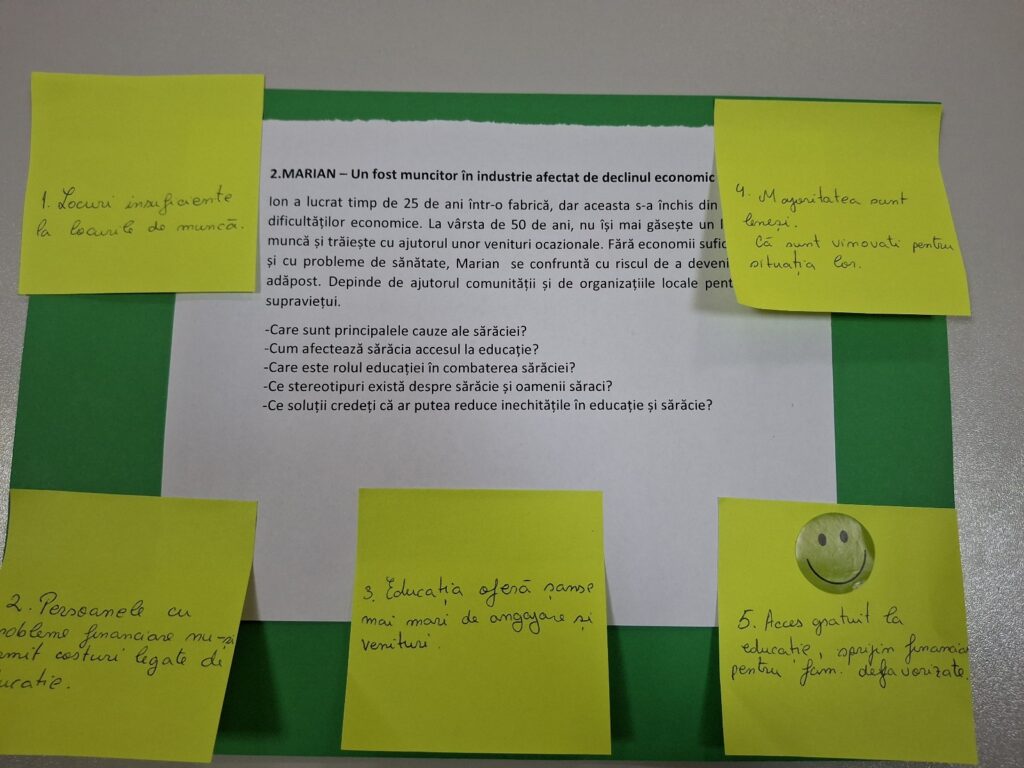 1. Locuri insuficiente
la locurile de muncă.
2.MARIAN – Un fost muncitor în industrie afectat de declinul economic
Ion a lucrat timp de 25 de ani într-o fabrică, dar aceasta s-a închis din
dificultăților economice. La vârsta de 50 de ani, nu își mai găsește un
muncă și trăiește cu ajutorul unor venituri ocazionale. Fără economii
și cu probleme de sănătate, Marian se confruntă cu riscul de a
adăpost. Depinde de ajutorul comunității și de organizațiile locale
supraviețui.
-Care sunt principalele cauze ale sărăciei?
-Cum afectează sărăcia accesul la educație?
-Care este rolul educației în combaterea sărăciei?
-Ce stereotipuri există despre sărăcie și oamenii săraci?
-Ce soluții credeți că ar putea reduce inechitățile în educație și sărăcie?
4. Majoritatea sunt
leneși.
Că sunt vinovati pentru
situația lor.
2. Persoanele cu
financiare nu-și
costuri legate de
3. Educația oferă șanse
mai mari de angajare și
venituri.
5. Acces gratuit la
educație, sprijin financiar
pentru fam. defavorizate.